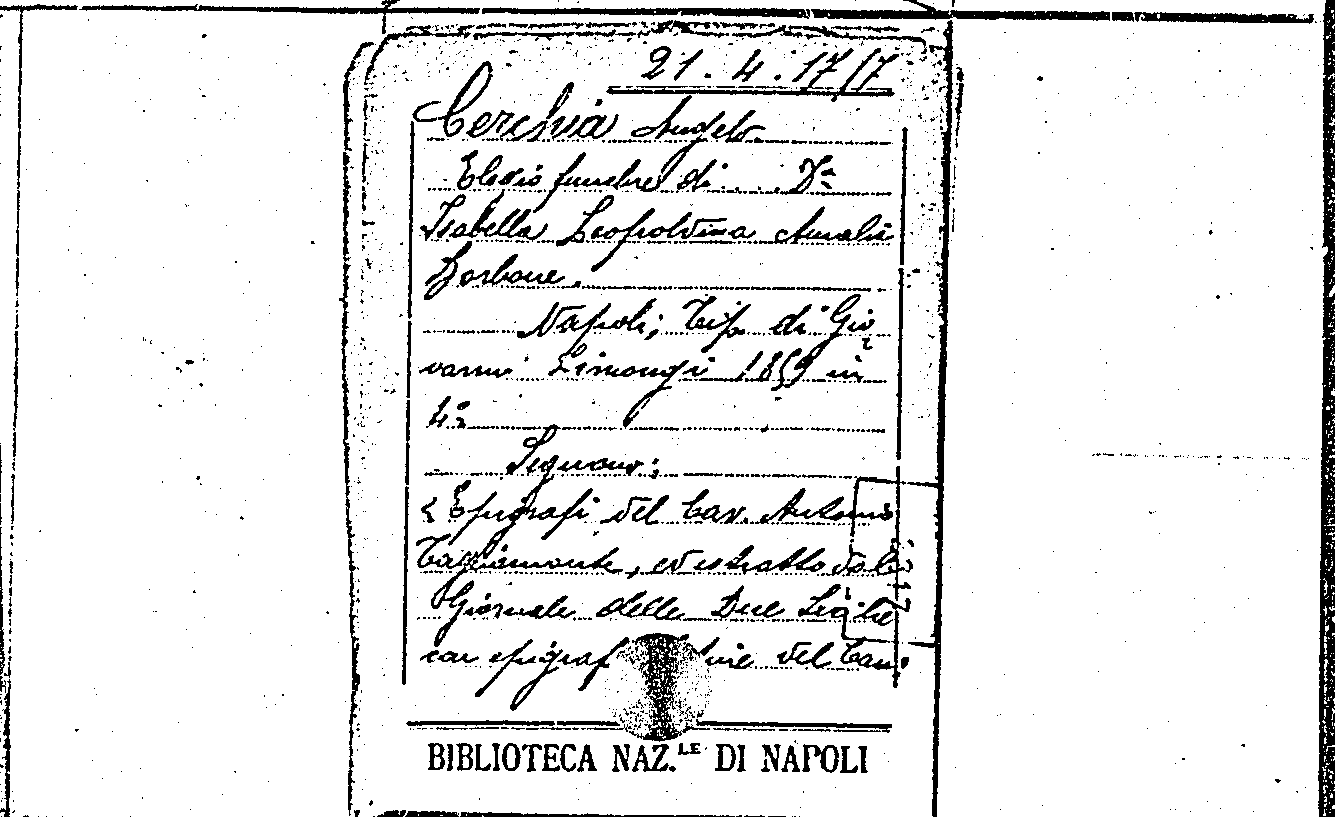 21.4.17/7
Cerchia Angelo
Elogio funebre di . . . Da
Isabella Leopoldina Amalia
Borbone.
Napoli; Tip. di Gio
vanni Limongi 1859 in
4º
Seguono:
2 Epigrafi del Cav. Antonio
Tagliamonte, ed estratto dal
Giornale delle Due Sicilie
con epigraf del Cav.
BIBLIOTECA NAZ.LE DI NAPOLI